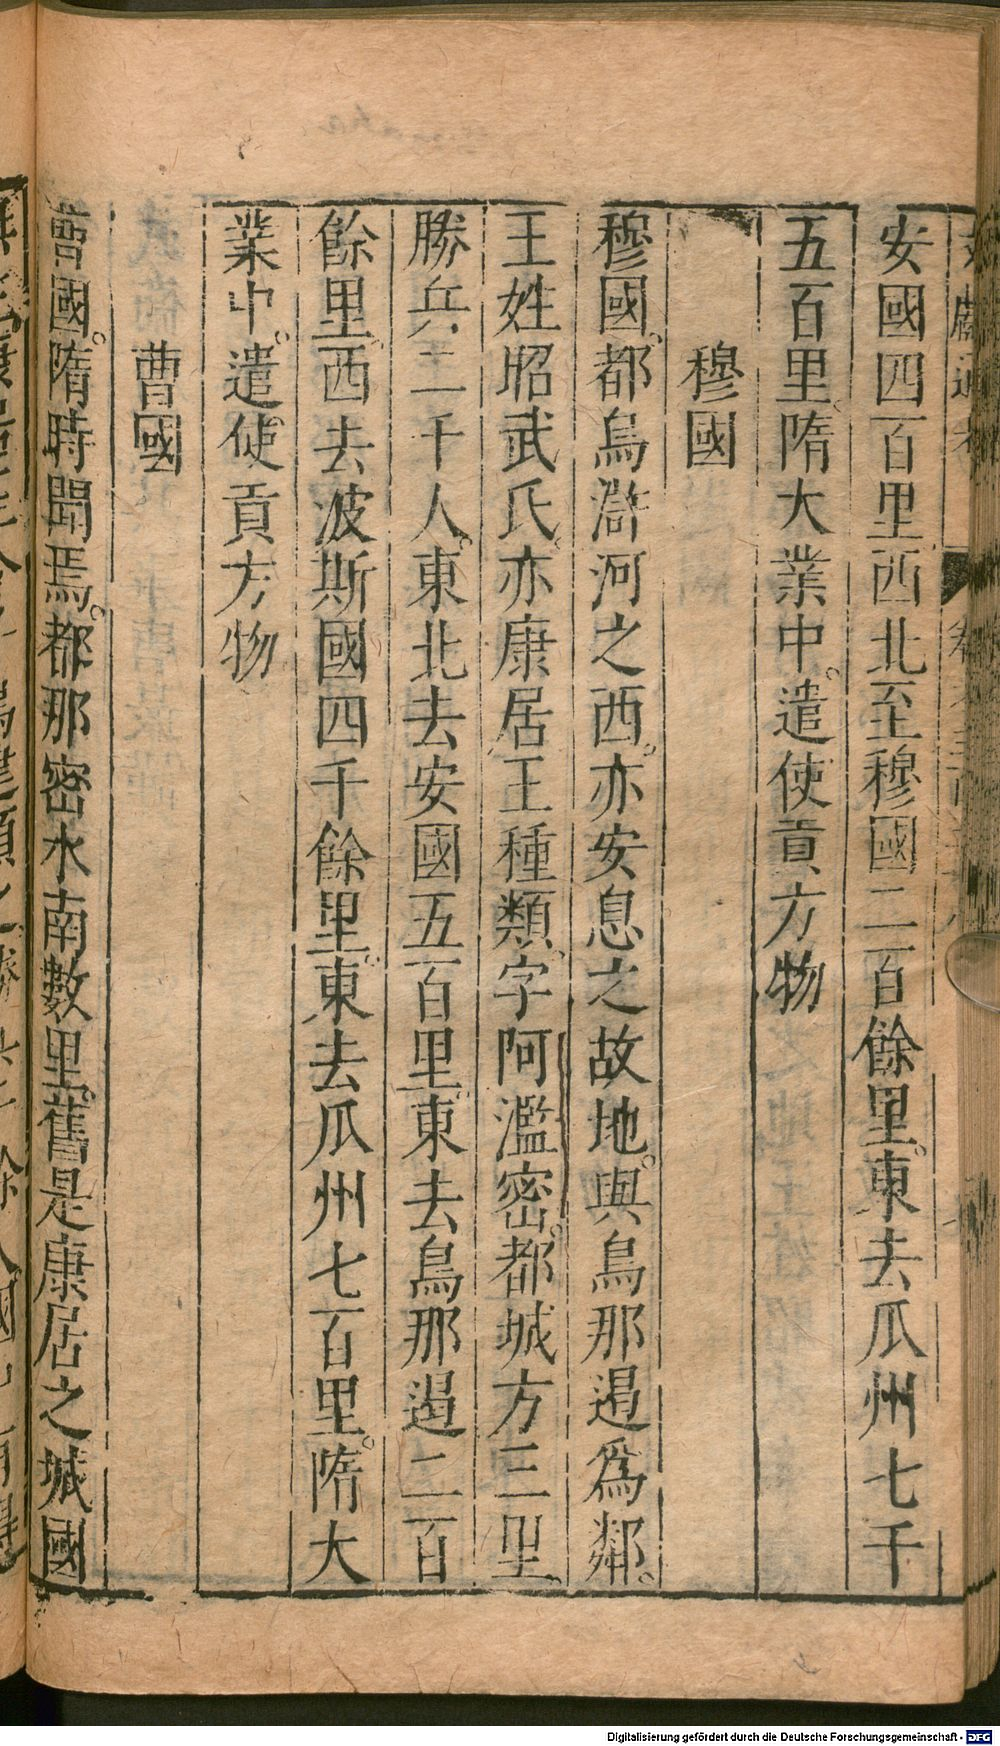 安國四百里西北至穆國二百餘里東去瓜州七千
五百里隋大業中遣使貢方物
穆國
穆國都烏滸河之西亦安息之故地與烏那遏爲鄰
王姓昭武氏亦康居王種類字阿濫密都城方三里
勝兵二千人東北去安國五百里東去烏那遏二百
餘里西去波斯國四千餘里東去瓜州七百里隋大
業中遣使貢方物
曹國
曹國隋時聞焉都那密水南數里舊是康居之城國
Digitalisierung gefördert durch die Deutsche Forschungsgemeinschaft - DFG